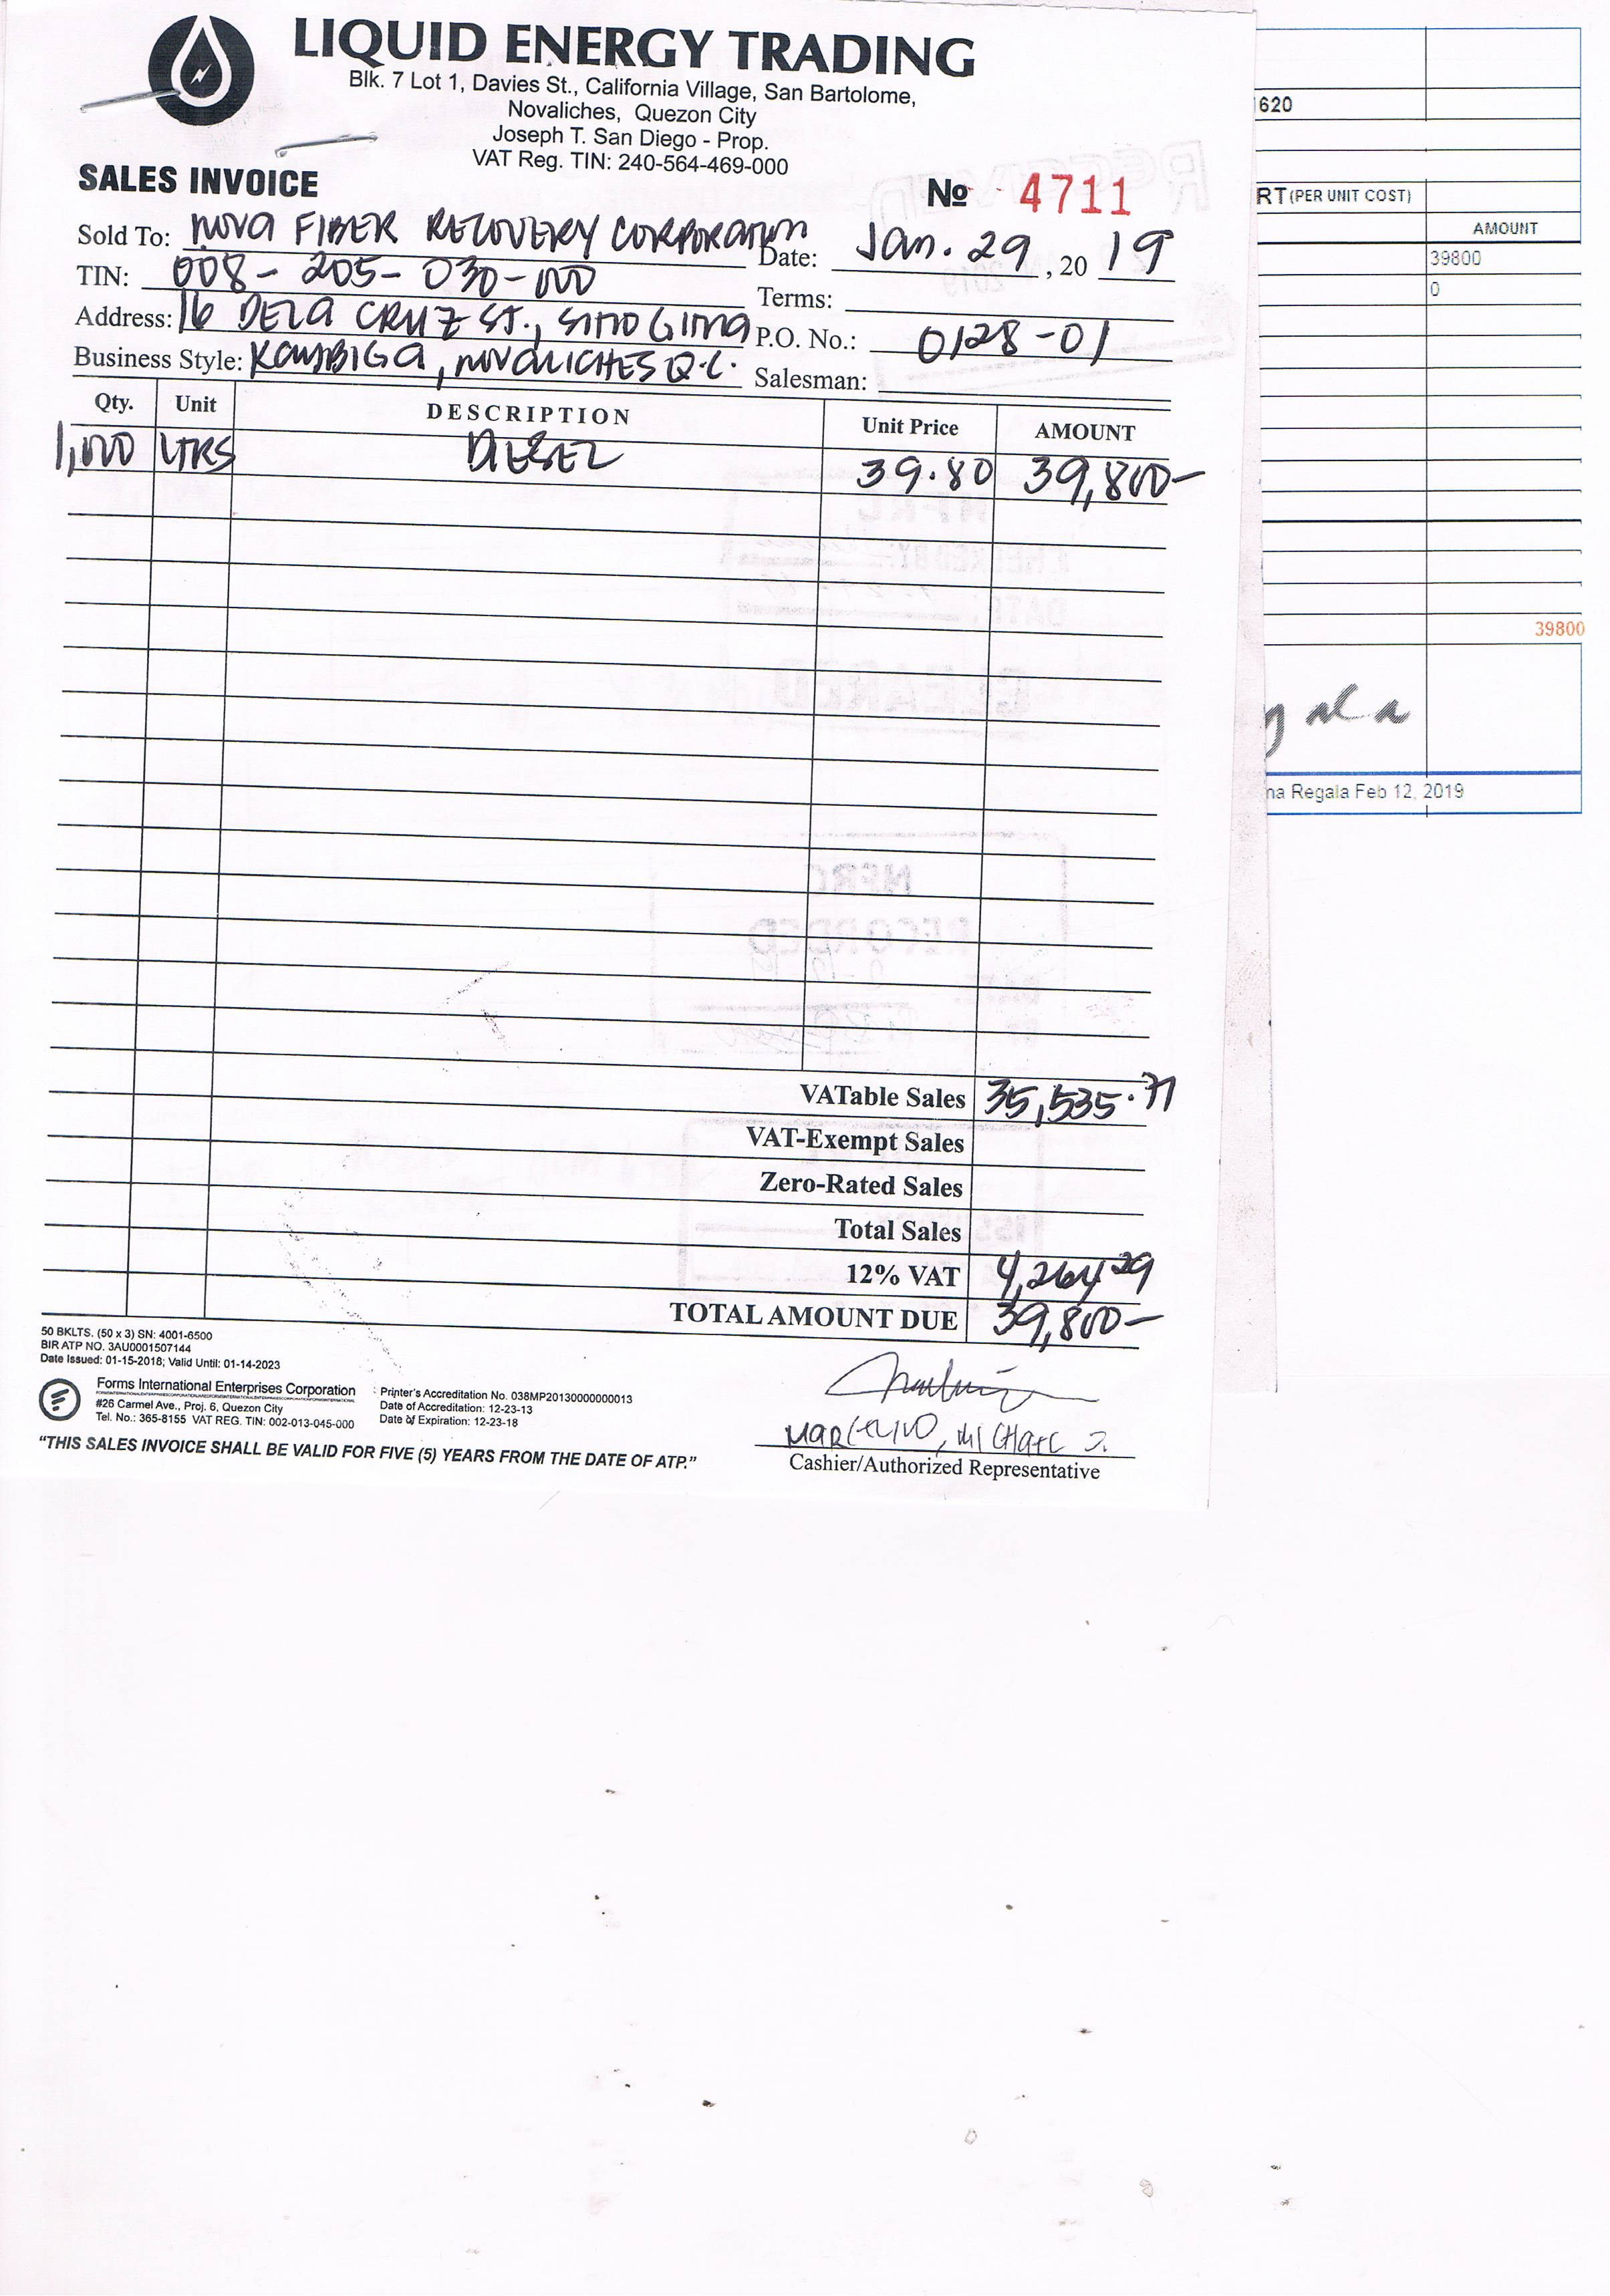 LIQUID ENERGY TRADING
Blk. 7 Lot 1, Davies St., California Village, San Bartolome,
Novaliches, Quezon City
Joseph T. San Diego - Prop.
VAT Reg. TIN: 240-564-469-000
SALES INVOICE
No 4711
Sold To: NOVA FIBER RECOVERY CORPORATION
Date: Jan. 29, 2019
TIN: 008-205-030-000
Terms:
Address: 16 DELA CRUZ ST., SITIO GITNA
P.O. No.: 0128-01
Business Style: KAYBIGA, NOVALICHES Q.C.
Salesman:
Qty. Unit DESCRIPTION Unit Price AMOUNT
1,000 LTRS DIESEL 39.80 39,800-
VATable Sales 35,535.71
VAT-Exempt Sales
Zero-Rated Sales
Total Sales
12% VAT 4,264.29
TOTAL AMOUNT DUE 39,800-
50 BKLTS. (50 x 3) SN: 4001-6500
BIR ATP NO. 3AU0001507144
Date Issued: 01-15-2018; Valid Until: 01-14-2023
Forms International Enterprises Corporation
#26 Carmel Ave., Proj. 6, Quezon City
Tel. No.: 365-8155 VAT REG. TIN: 002-013-045-000
Printer's Accreditation No. 038MP20130000000013
Date of Accreditation: 12-23-13
Date of Expiration: 12-23-18
"THIS SALES INVOICE SHALL BE VALID FOR FIVE (5) YEARS FROM THE DATE OF ATP."
MARCELINO, MICHAEL J.
Cashier/Authorized Representative
1620
RT (PER UNIT COST)
AMOUNT
39800
0
39800
na Regala Feb 12, 2019